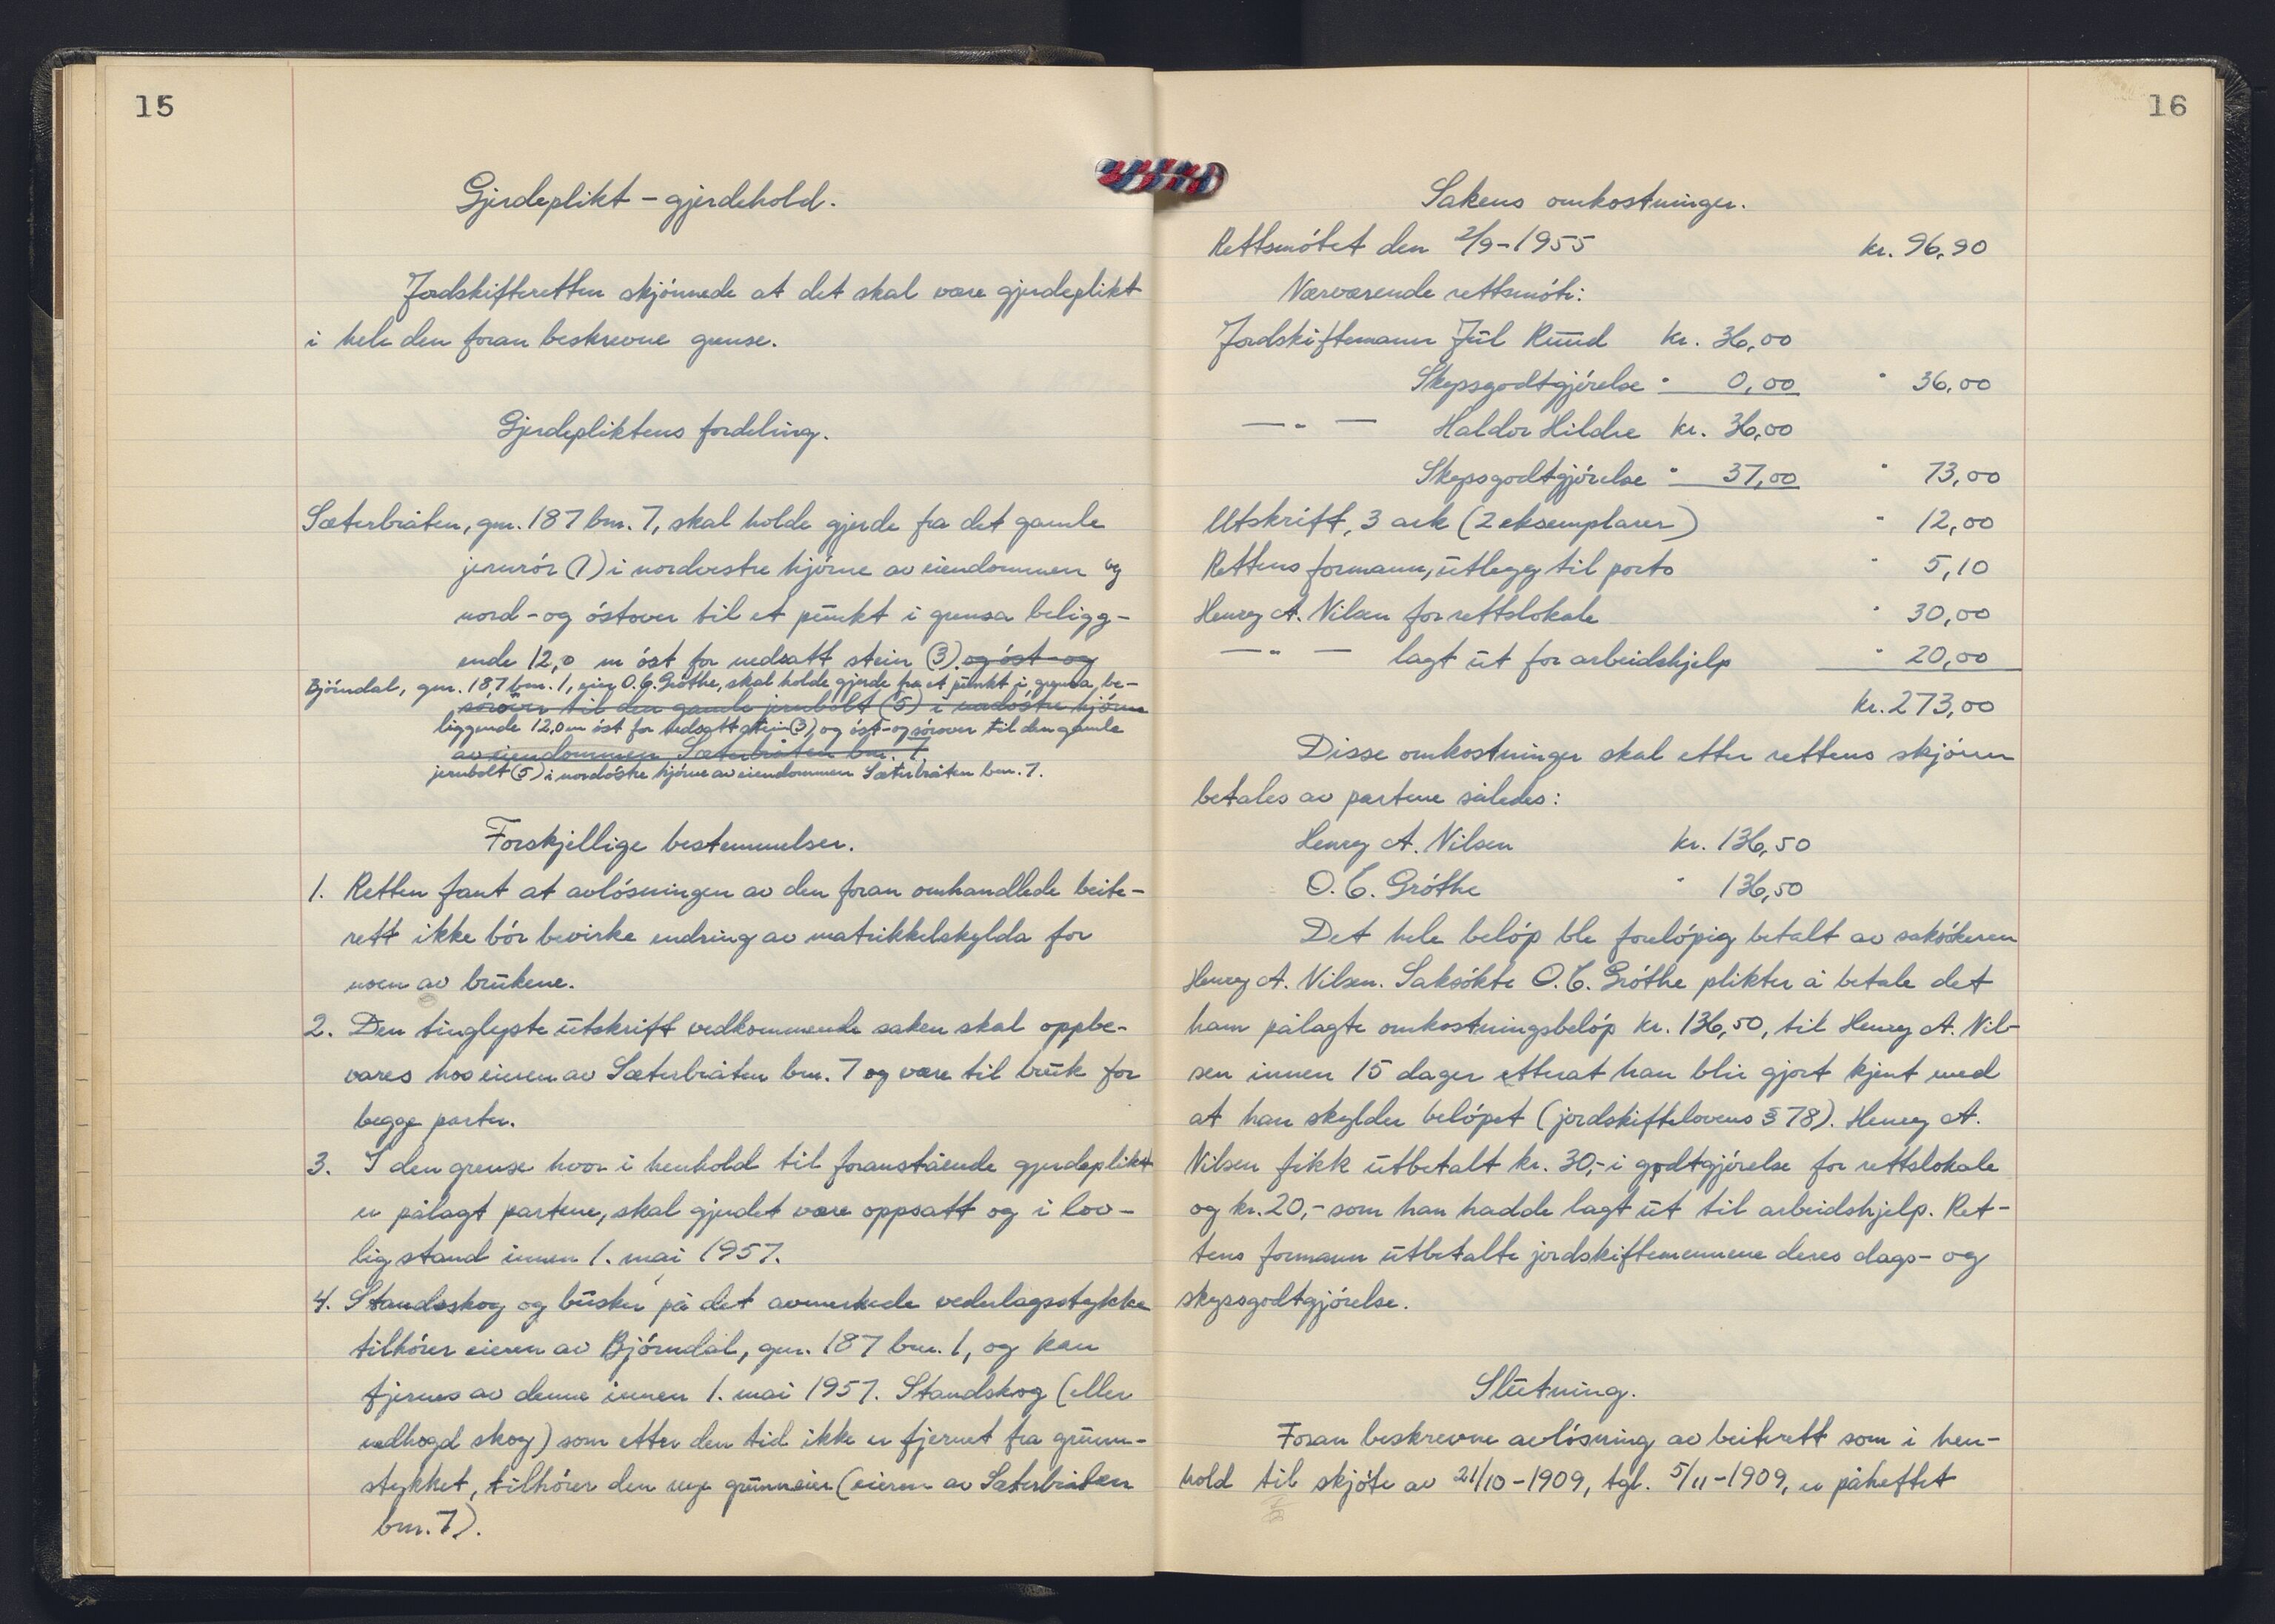 15
Gjerdeplikt – gjerdehold.
Jordskifteretten skjønnede at det skal være gjerdeplikt
i hele den foran beskrevne grense.
Gjerdepliktens fordeling.
Sæterbråten, gnr. 187 bnr. 7, skal holde gjerde fra det gamle
jernrør (1) i nordvestre hjørne av eiendommen og
nord- og østover til et punkt i grensa beligg-
ende 12,0 m øst for nedsatt stein (3). og øst- og
Bjørndal, gnr. 187 bnr. 1, eier O. C. Grøthe, skal holde gjerde fra et punkt i grensa, be-
sørover til den gamle jernbolt (5) i nordøstre hjørne
liggende 12,0 m øst for nedsatt stein (3), og øst- og sørover til den gamle
av eiendommen Sæterbråten bnr. 7.
jernbolt (5) i nordøstre hjørne av eiendommen Sæterbråten bnr. 7.
Forskjellige bestemmelser.
1. Retten fant at avløsningen av den foran omhandlede beite-
rett ikke bør bevirke endring av matrikkelskylda for
noen av brukene.
2. Den tinglyste utskrift vedkommende saken skal oppbe-
vares hos eieren av Sæterbråten bnr. 7 og være til bruk for
begge parter.
3. I den grense hvor i henhold til foranstående gjerdeplikt
er pålagt partene, skal gjerdet være oppsatt og i lov-
lig stand innen 1. mai 1957.
4. Standskog og busker på det avmerkede vederlagsstykke
tilhører eieren av Bjørndal, gnr. 187 bnr. 1, og kan
fjernes av denne innen 1. mai 1957. Standskog (eller
nedhogd skog) som etter den tid ikke er fjernet fra grunn-
stykket, tilhører den nye grunneier (eieren av Sæterbråten
bnr. 7).
16
Sakens omkostninger.
Rettsmøtet den 2/9-1955 kr. 96,90
Nærværende rettsmøte:
Jordskiftemann Jul Ruud kr. 36,00
Skyssgodtgjørelse " 0,00 " 36,00
—"— Haldor Hildre kr. 36,00
Skyssgodtgjørelse " 37,00 " 73,00
Utskrift, 3 ark (2 eksemplarer) " 12,00
Rettens formann, utlegg til porto " 5,10
Henry A. Nilsen for rettslokale " 30,00
—"— lagt ut for arbeidshjelp " 20,00
kr. 273,00
Disse omkostninger skal etter rettens skjønn
betales av partene således:
Henry A. Nilsen kr. 136,50
O. C. Grøthe " 136,50
Det hele beløp ble foreløpig betalt av saksøkeren
Henry A. Nilsen. Saksøkte O. C. Grøthe plikter å betale det
ham pålagte omkostningsbeløp kr. 136,50, til Henry A. Nil-
sen innen 15 dager etterat han blir gjort kjent med
at han skylder beløpet (jordskiftelovens § 78). Henry A.
Nilsen fikk utbetalt kr. 30,- i godtgjørelse for rettslokale
og kr. 20,- som han hadde lagt ut til arbeidshjelp. Ret-
tens formann utbetalte jordskiftemennene deres dags- og
skyssgodtgjørelse.
Slutning.
Foran beskrevne avløsning av beiterett som i hen-
hold til skjøte av 21/10-1909, tgl. 5/11-1909, er påheftet